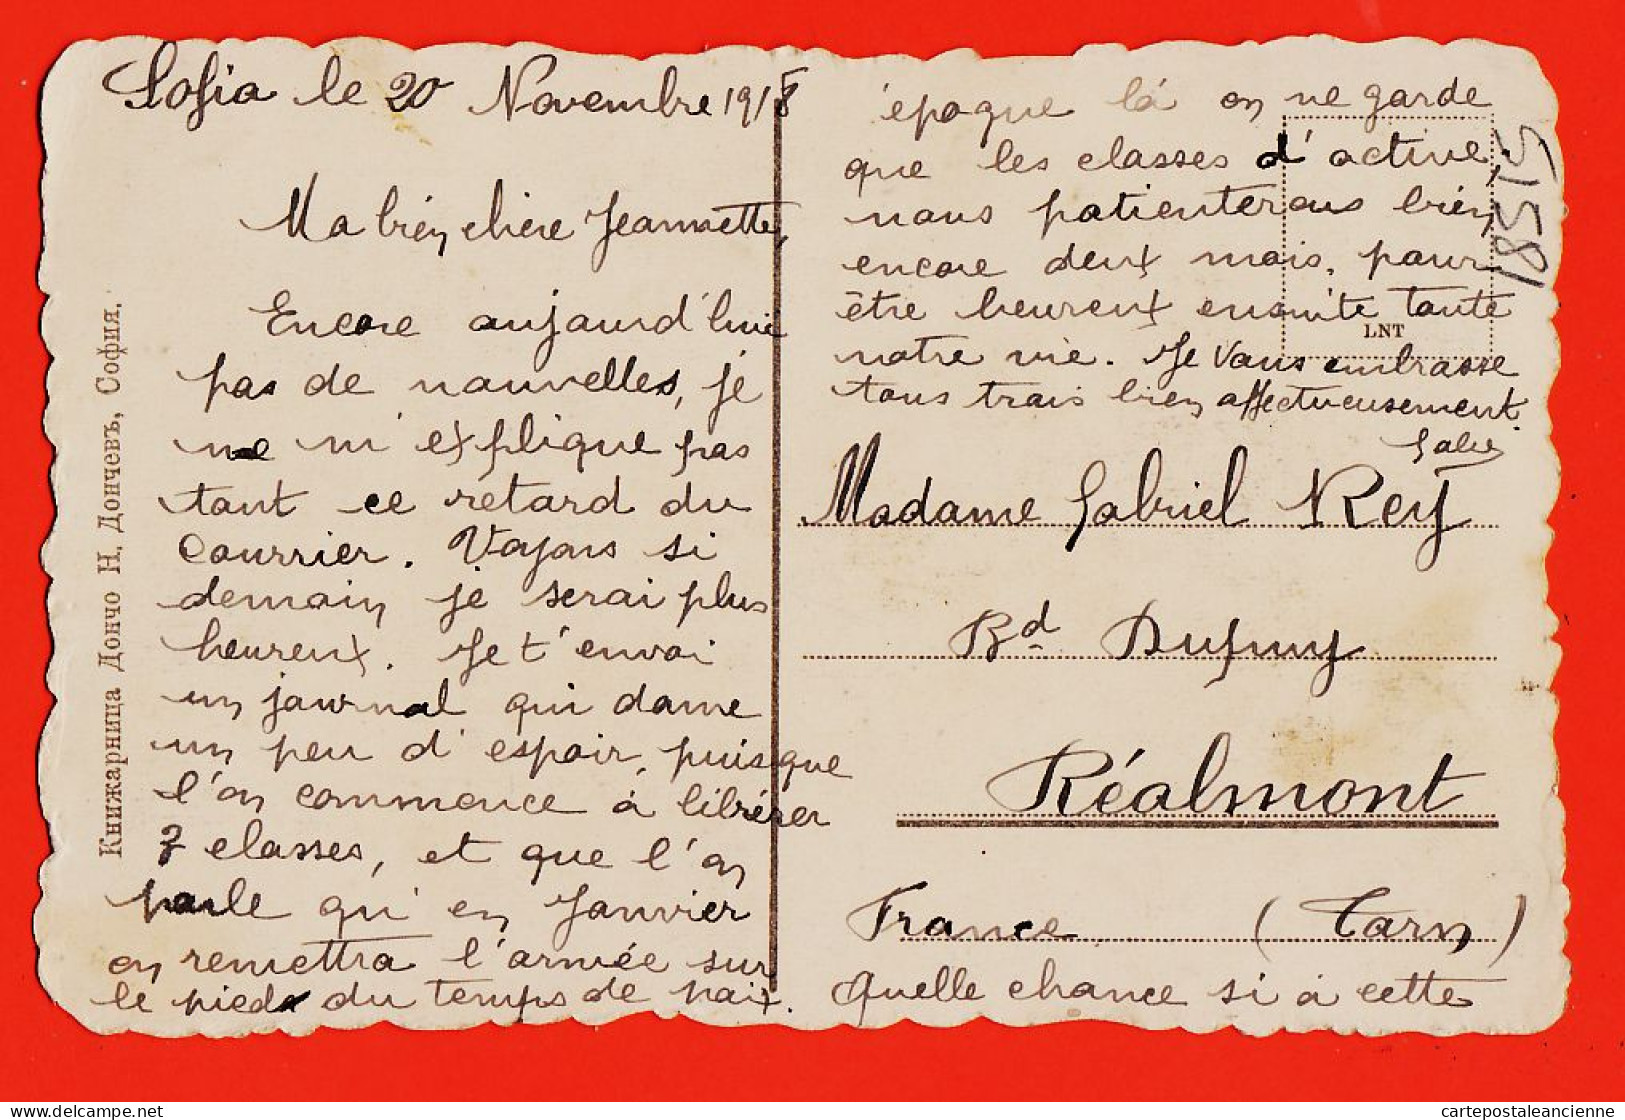 Sofia le 20 Novembre 1918
Ma bien chère Jeannette,
Encore aujourd'hui
pas de nouvelles, je
ne m'explique pas
tant ce retard du
Courrier. Voyons si
demain je serai plus
heureux. Je t'envoi
un journal qui donne
un peu d'espoir, puisque
l'on commence à libérer
7 classes, et que l'on
parle qu'en Janvier
on remettra l'armée sur
le pied du temps de paix.
Quelle chance si à cette
époque là on ne garde
que les classes d'active,
nous patienterons bien
encore deux mois, pour
être heureux ensuite toute
notre vie. Je vous embrasse
tous trois bien affectueusement.
Gabie
Madame Gabriel Rey
Bd Dupuy
Réalmont
France (Tarn)
LNT
18515
Книжарница Дончо Н. Дончевъ, София.
cartepostaleancienne